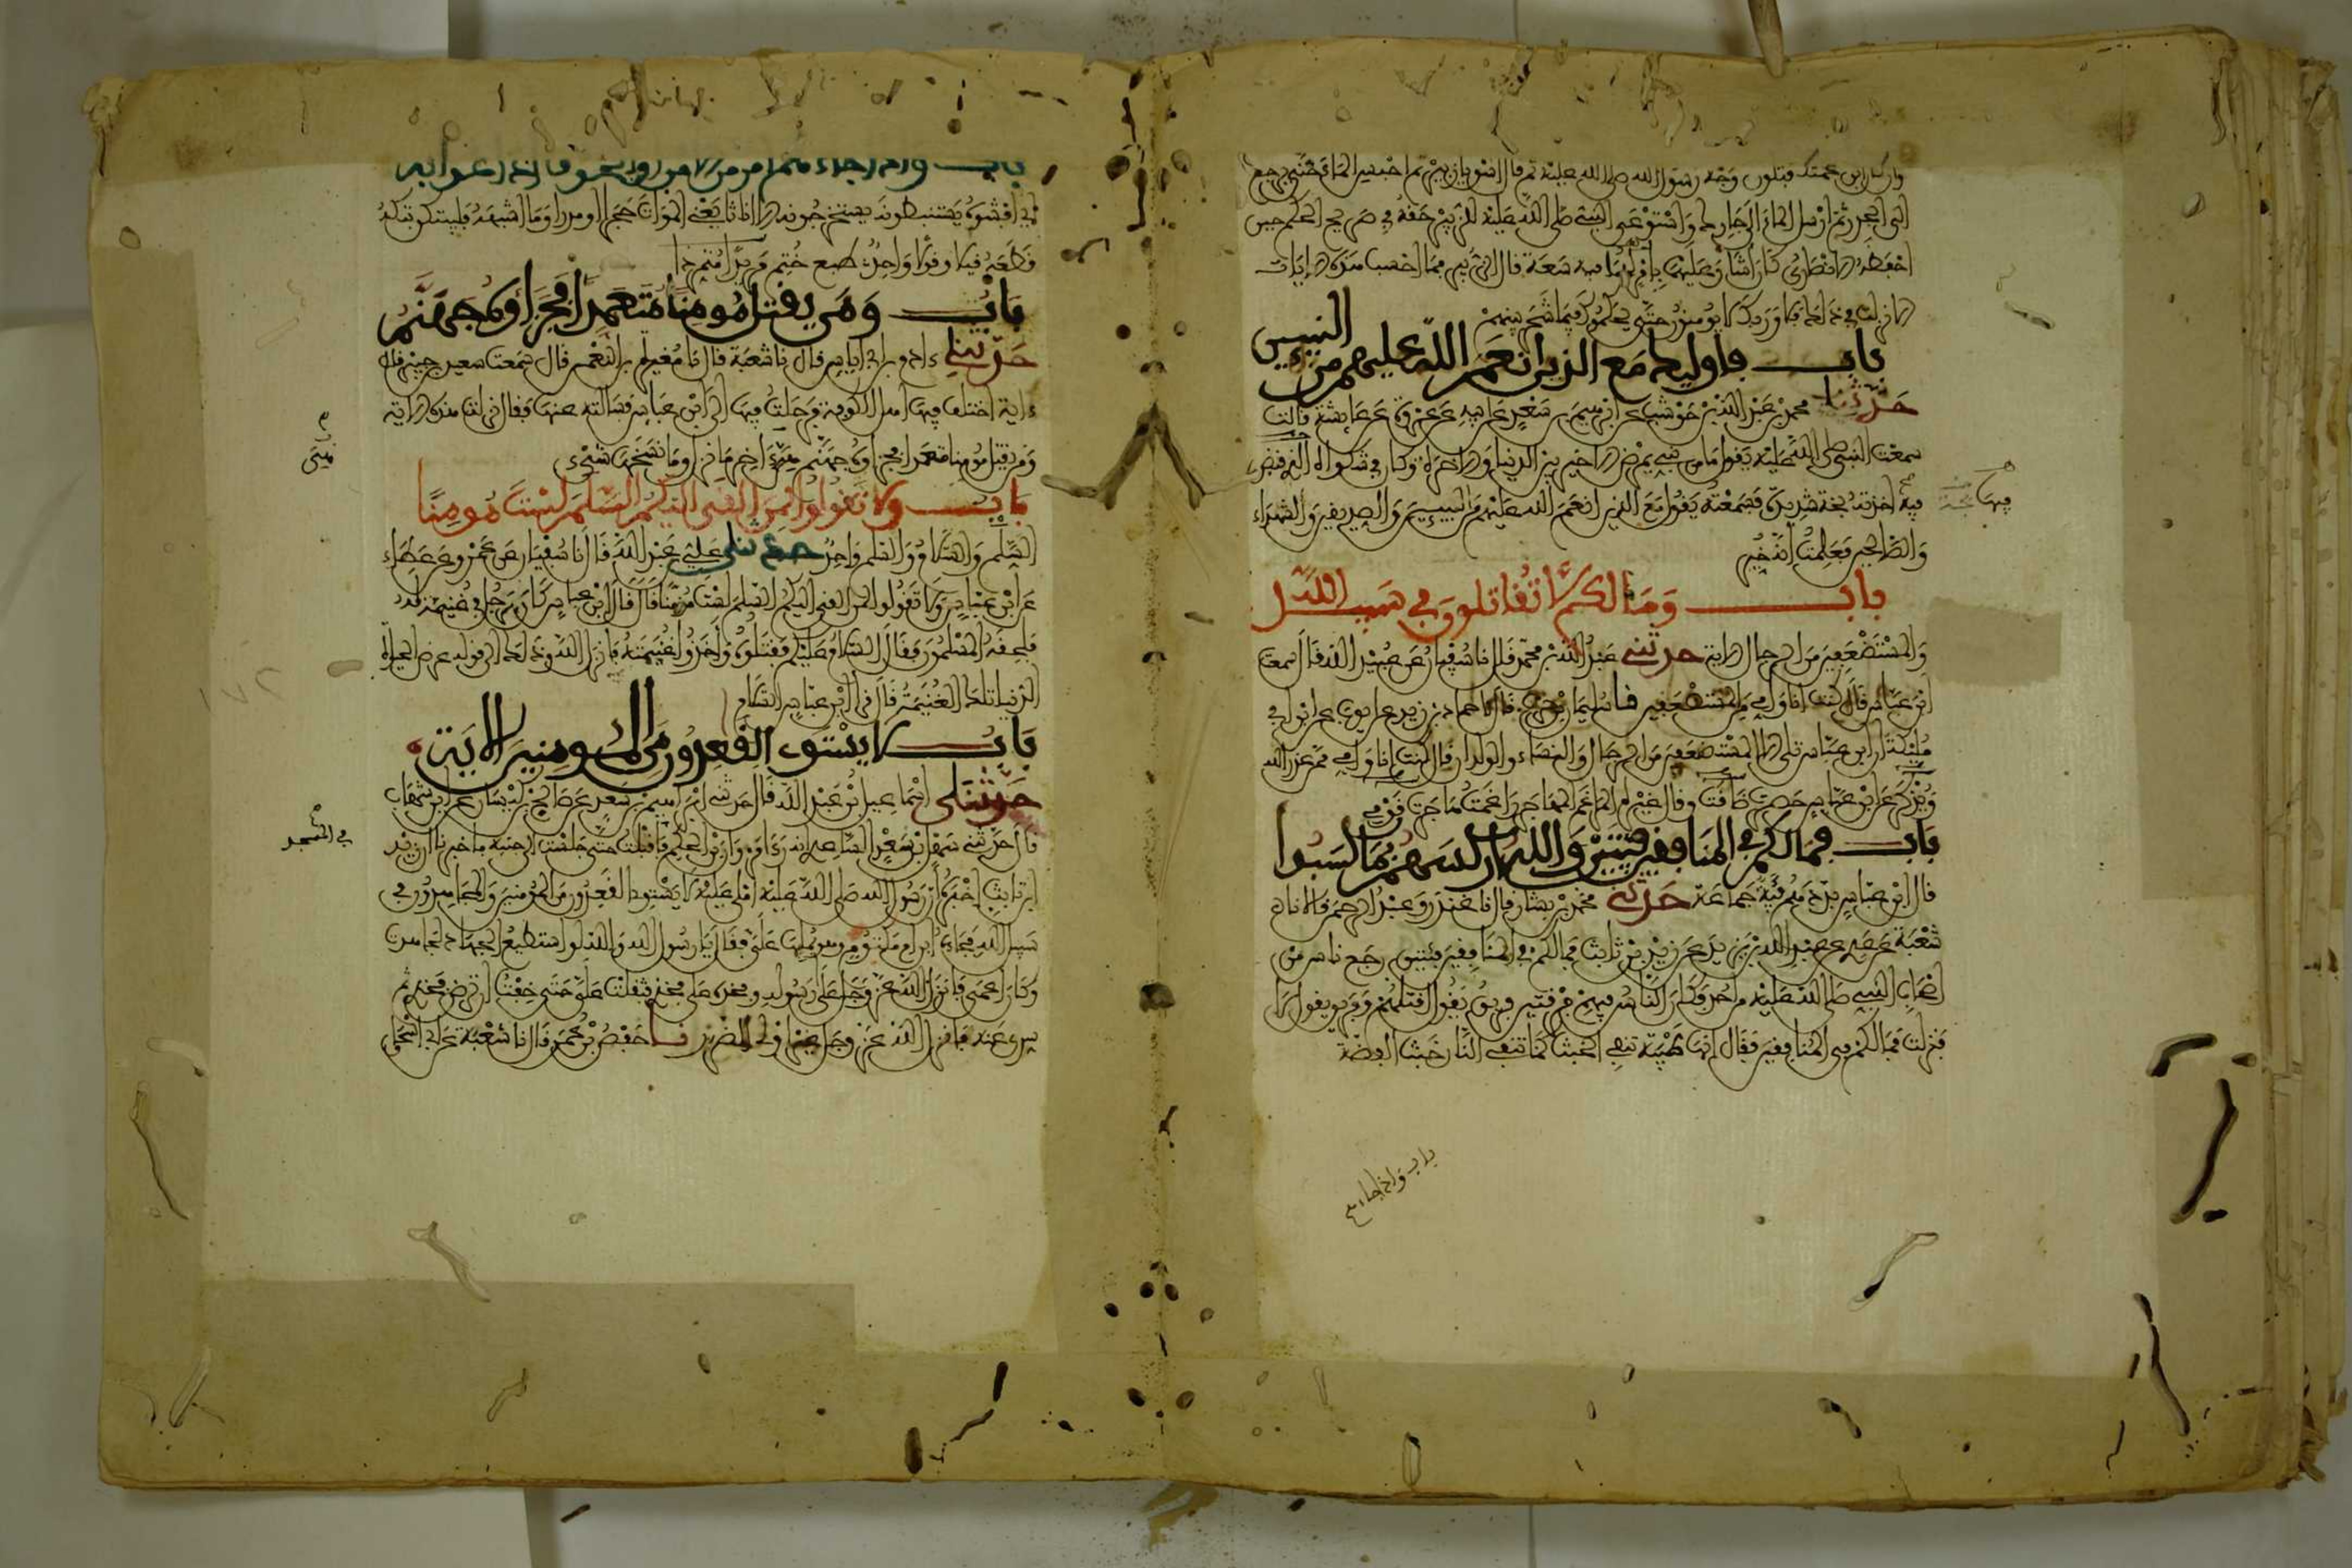 وان كان ابن عمتك فتلون وجه رسول الله صلى الله عليه ثم قال اسق يا زبير ثم احبس الماء حتى يرجع
الى الجدر ثم ارسل الماء الى جارك واستوعى النبي صلى الله عليه للزبير حقه في صريح الحكم حين
احفظه الانصاري كان اشار عليهما بامر لهما فيه سعة قال الزبير فما احسب هذه الايات
الا نزلت في ذلك فلا وربك لا يومنون حتى يحكموك فيما شجر بينهم
باب فاوليك مع الذين انعم الله عليهم من النبيين
حدثنا محمد بن عبد الله بن حوشب عن ابرهيم بن سعد عن ابيه عن عروة عن عايشة قالت
سمعت النبي صلى الله عليه يقول ما من نبي يمرض الا خير بين الدنيا والاخرة وكان في شكواه الذي قبض
فيه اخذته بحة شديدة فسمعته يقول مع الذين انعم الله عليهم من النبيين والصديقين والشهداء
والصالحين فعلمت انه خير
باب وما لكم لا تقاتلون في سبيل الله
والمستضعفين من الرجال الاية حدثني عبد الله بن محمد قال نا سفيان عن عبيد الله قال سمعت
ابن عباس قال كنت انا وامي من المستضعفين نا سليمان بن حرب قال نا حماد بن زيد عن ايوب عن ابن ابي
مليكة ان ابن عباس تلى الا المستضعفين من الرجال والنساء والولدان قال كنت انا وامي ممن عذر الله
ويذكر عن ابن عباس حصرت ضاقت وقال غيره المراغم المهاجر راغمت هاجرت قومي
باب فما لكم في المنافقين فئتين والله اركسهم بما كسبوا
قال ابن عباس بددهم فئة جماعة حدثني محمد بن بشار قال نا غندر وعبد الرحمن قالا نا
شعبة عن عدي عن عبد الله بن يزيد عن زيد بن ثابت فما لكم في المنافقين فئتين رجع ناس من
اصحاب النبي صلى الله عليه من احد وكان الناس فيهم فرقتين فريق يقول اقتلهم وفريق يقول لا
فنزلت فما لكم في المنافقين فقال انها طيبة تنفي الخبث كما تنفي النار خبث الفضة
فيها
باب واذا جاءهم
باب واذا جاءهم امر من الامن او الخوف اذاعوا به
اي افشوه يستنبطونه يستخرجونه الا اناثا يعني الموات حجرا او مدرا وما اشبهه فليبتكن بتكه
قطعه قيلا وقولا واحد طبع ختم مريدا متمردا
باب ومن يقتل مومنا متعمدا فجزاوه جهنم
حدثنا ءادم بن ابي اياس قال نا شعبة قال نا مغيرة بن النعمن قال سمعت سعيد بن جبير قال
ءاية اختلف فيها اهل الكوفة فرحلت فيها الى ابن عباس فسالته عنها فقال نزلت هذه الاية
ومن يقتل مومنا متعمدا فجزاوه جهنم هي ءاخر ما نزل وما نسخها شيء
باب ولا تقولوا لمن القى اليكم السلم لست مومنا
السلم والسلام والسلم واحد حدثني علي بن عبد الله قال نا سفيان عن عمرو عن عطاء
عن ابن عباس ولا تقولوا لمن القى اليكم السلم لست مومنا قال قال ابن عباس كان رجل في غنيمة له
فلحقه المسلمون فقال السلام عليكم فقتلوه واخذوا غنيمته فانزل الله في ذلك الى قوله عرض الحياة
الدنيا تلك الغنيمة قال قرا ابن عباس السلام
باب لا يستوي القعدون من المومنين الاية
حدثنا اسماعيل بن عبد الله قال حدثني ابرهيم بن سعد عن صالح بن كيسان عن ابن شهاب
قال حدثني سهل بن سعد الساعدي انه راى مروان بن الحكم فاقبلت حتى جلست الى جنبه فاخبرنا ان زيد
ابن ثابت اخبره ان رسول الله صلى الله عليه املى عليه لا يستوي القعدون من المومنين والمجاهدون في
سبيل الله فجاءه ابن ام مكتوم وهو يملها علي فقال يا رسول الله والله لو استطيع الجهاد لجاهدت
وكان اعمى فانزل الله عز وجل على رسوله وفخذه على فخذي فثقلت علي حتى خفت ان ترض فخذي ثم
سري عنه فانزل الله عز وجل غير اولي الضرر نا حفص بن عمر قال نا شعبة عن ابي اسحق
في المسجد